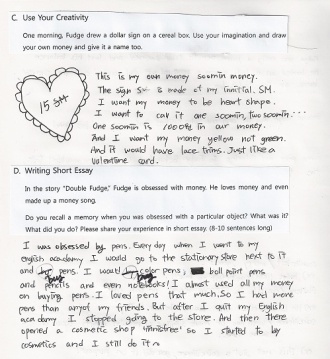 C. Use Your Creativity
One morning, Fudge drew a dollar sign on a cereal box. Use your imagination and draw
your own money and give it a name too.
15 SM
This is my own money soomin money.
The sign SM is made of my initial. SM.
I want my money to be heart shape.
I want to call it one soomin, two soomin...
One soomin is 1000 in our money.
And I want my money yellow not green.
And it would have lace trims. Just like a
valentine card.
D. Writing Short Essay
In the story "Double Fudge," Fudge is obsessed with money. He loves money and even
made up a money song.
Do you recall a memory when you was obsessed with a particular object? What was it?
What did you do? Please share your experience in short essay. (8-10 sentences long)
I was obsessed by pens. Every day when I went to my
english academy I would go to the stationary store next to it
and buy pens. I would buy color pens, ball point pens
and pencils and even notebooks! I almost used all my money
on buying pens. I loved pens that much. So I had more
pens than any of my friends. But after I quit my English
academy I stopped going to the store. And then there
opened a cosmetic shop 'innisfree' so I started to buy
cosmetics and I still do it~